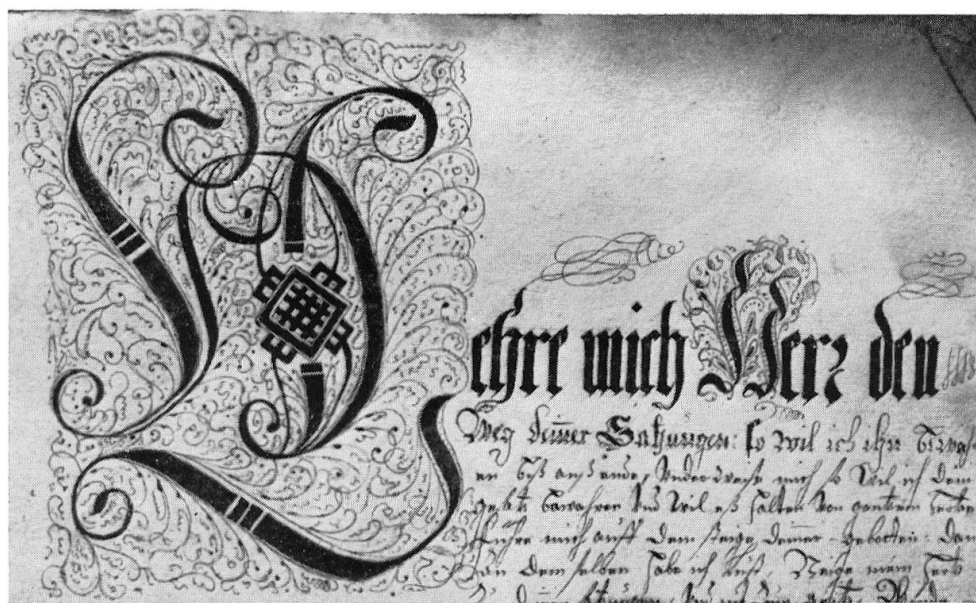 Lehre mich Herr den
Weg deiner Satzungen: so wil ich ihn bewahr
en biß ans ende, Underweise mich so wil ich dein
gesatz bewahren und wil eß halten von gantzem hertze
Führe mich auff dem steige deiner gebotten: dan
an dem selben habe ich lust, Neige mein hertz